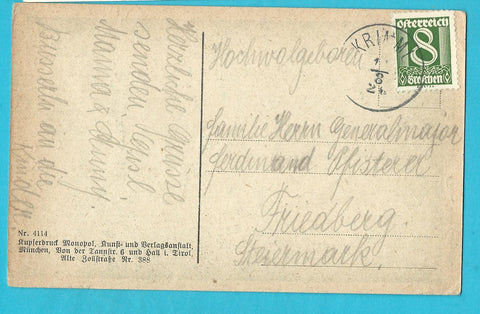 Herzliche Grüsse
senden Liesl
Mama & Anny.
Busserln an die
Kinder.
Nr. 4114
Kupferdruck Monopol, Kunst- und Verlagsanstalt,
München, Von der Tannstr. 6 und Hall i. Tirol,
Alte Zollstraße Nr. 388
Österreich
8
Groschen
KRIMML
Hochwolgeboren
Familie Herrn Generalmajor
Ferdinand Pfisterer
Friedberg.
Steiermark.